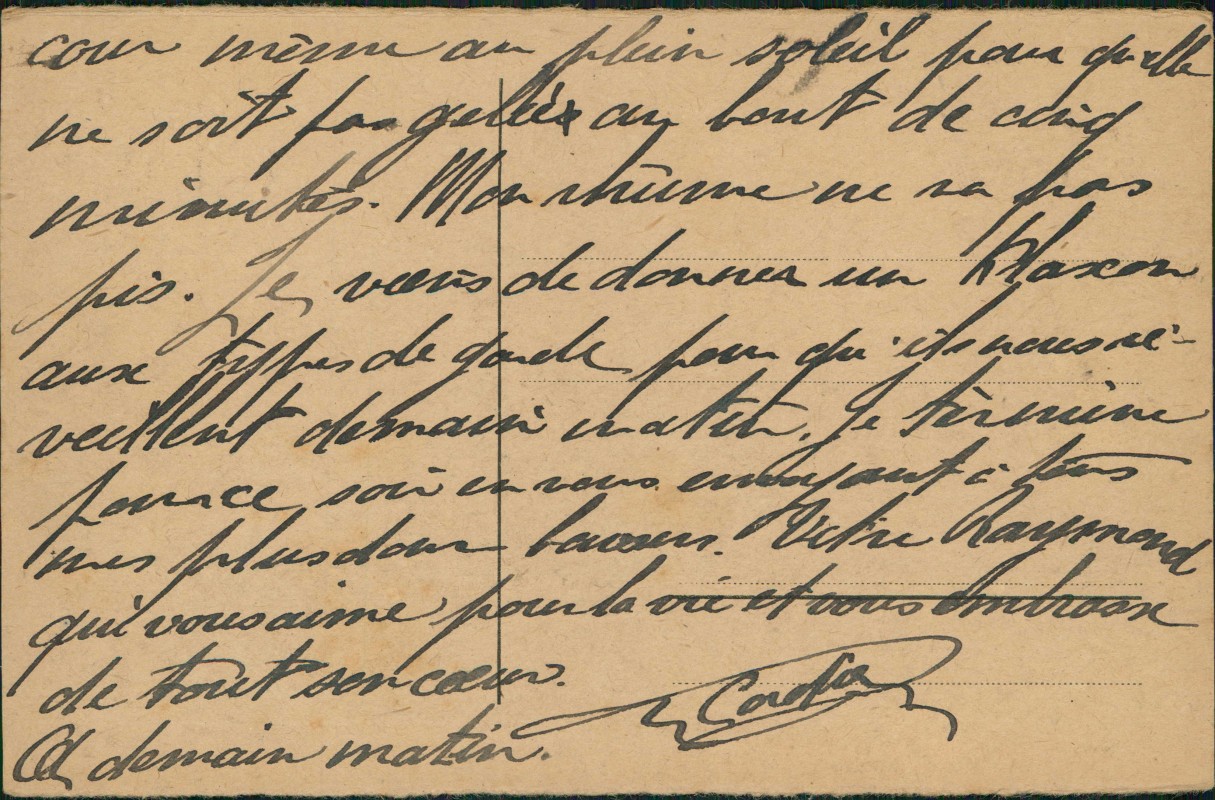 cour même au plein soleil pour qu'elle
ne soit pas gelée au bout de cinq
minutes. Mon rhume ne va pas
pis. Je viens de donner un Klaxon
aux types de garde pour qu'ils nous ré-
veillent demain matin. Je termine
pour ce soir en vous envoyant à tous
mes plus doux baisers. Votre Raymond
qui vous aime pour la vie et vous embrasse
de tout son cœur.
A demain matin.